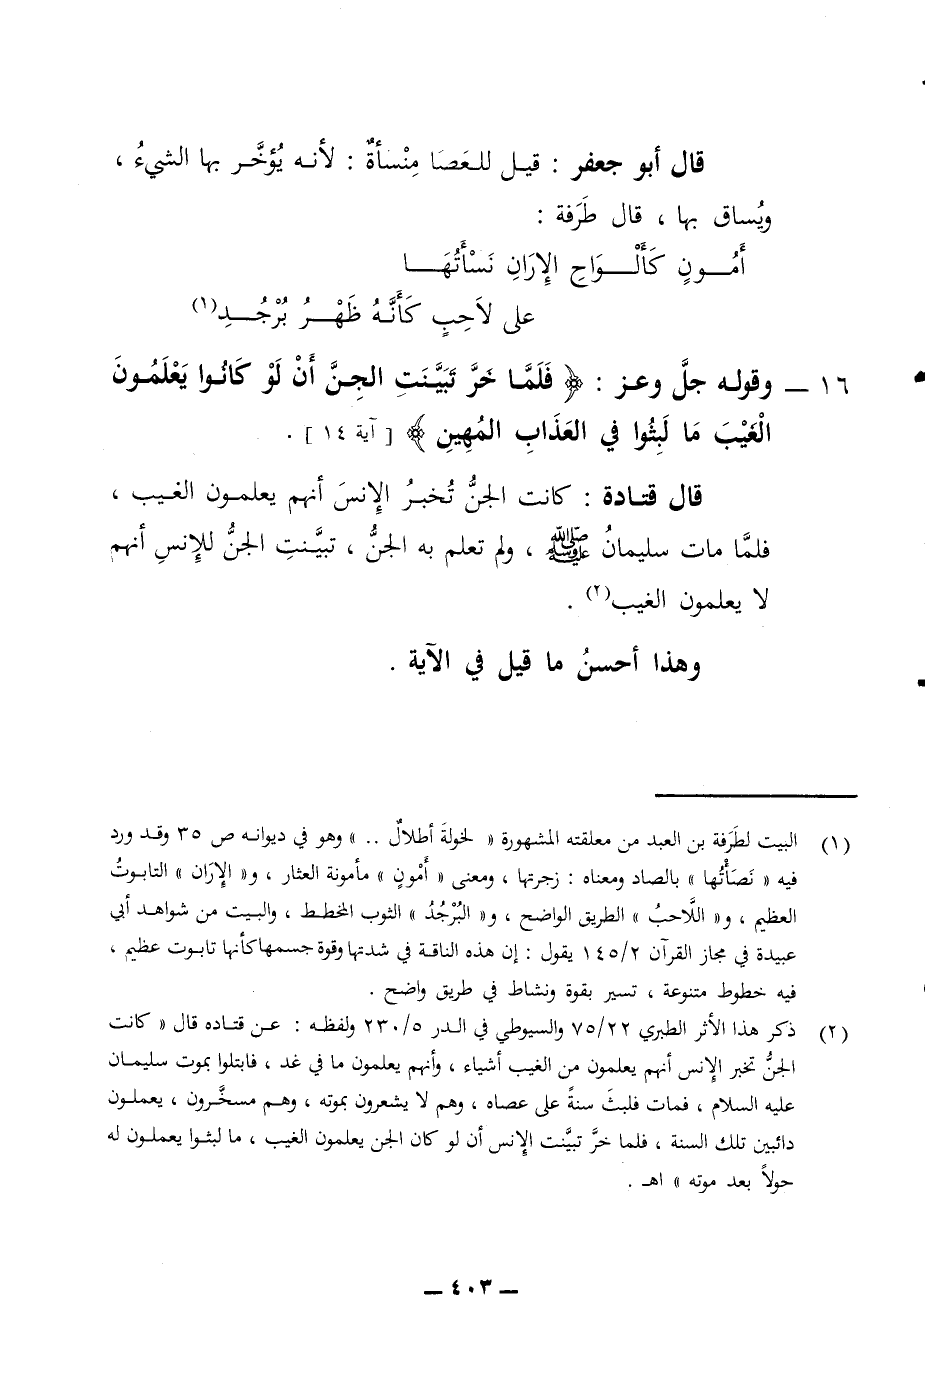 قال أبو جعفر : قيل للعَصَا مِنْسأةٌ : لأنه يُؤخَّر بها الشيءُ ،
ويُساق بها ، قال طَرَفة :
أَمُونٍ كَأَلْوَاحِ الإِرَانِ نَسْأَتُهَا
على لاَحِبٍ كَأَنَّهُ ظَهْرُ بُرْجُدِ(١)
١٦ ــ وقوله جلَّ وعز : ﴿ فَلَمَّا خَرَّ تَبَيَّنَتِ الجِنَّ أَنْ لَوْ كَانُوا يَعْلَمُونَ
الْغَيْبَ مَا لَبِثُوا في العَذَابِ المُهِينِ ﴾ [ آية ١٤ ] .
قال قتادة : كانت الجنُّ تُخبرُ الإِنسَ أنهم يعلمون الغيب ،
فلمَّا مات سليمانُ ﷺ ، ولم تعلم به الجنُّ ، تبيَّنتِ الجنُّ للإِنسِ أنهم
لا يعلمون الغيب(٢) .
وهذا أحسنُ ما قيل في الآية .
(١) البيت لطَرَفة بن العبد من معلقته المشهورة « لخولةَ أطلالٌ .. » وهو في ديوانه ص ٣٥ وقد ورد
فيه « نَصَأْتُها » بالصاد ومعناه : زجرتها ، ومعنى « أَمْونٍ » مأمونة العثار ، و« الإِرَان » التابوتُ
العظيم ، و« اللَّاحبُ » الطريق الواضح ، و« البُرْجُدُ » الثوب المخطط ، والبيت من شواهد أبي
عبيدة في مجاز القرآن ١٤٥/٢ يقول : إن هذه الناقة في شدتها وقوة جسمها كأنها تابوت عظيم ،
فيه خطوط متنوعة ، تسير بقوة ونشاط في طريق واضح .
(٢) ذكر هذا الأثر الطبري ٧٥/٢٢ والسيوطي في الدر ٢٣٠/٥ ولفظه : عن قتاده قال « كانت
الجنُّ تخبر الإِنس أنهم يعلمون من الغيب أشياء ، وأنهم يعلمون ما في غد ، فابتلوا بموت سليمان
عليه السلام ، فمات فلبثَ سنةً على عصاه ، وهم لا يشعرون بموته ، وهم مسخَّرون ، يعملون
دائبين تلك السنة ، فلما خرَّ تبيَّنت الإِنس أن لو كان الجن يعلمون الغيب ، ما لبثوا يعملون له
حولاً بعد موته » اهـ .
ــ ٤٠٣ ــ